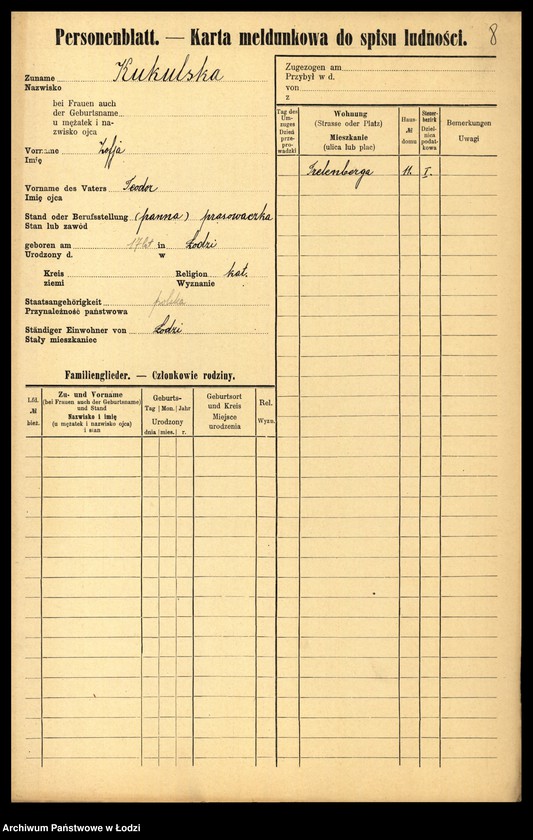 Personenblatt. — Karta meldunkowa do spisu ludności. 8
Zuname Kukulska
Nazwisko
bei Frauen auch
der Geburtsname
u mężatek i na-
zwisko ojca
Vorname Zofja
Imię
Vorname des Vaters Teodor
Imię ojca
Stand oder Berufsstellung (panna) prasowaczka
Stan lub zawód
geboren am 17 lat in Łodzi
Urodzony d. w
Kreis Religion kat.
ziemi Wyznanie
Staatsangehörigkeit polska
Przynależność państwowa
Ständiger Einwohner von Łodzi
Stały mieszkaniec
Familienglieder. — Członkowie rodziny.
Lfd. № bież.
Zu- und Vorname
(bei Frauen auch der Geburtsname)
und Stand
Nazwisko i imię
(u mężatek i nazwisko ojca)
i stan
Geburts-
Tag Mon. Jahr
Urodzony
dnia mies. r.
Geburtsort
und Kreis
Miejsce
urodzenia
Rel.
Wyzn.
Zugezogen am
Przybył w d.
von
z
Tag des
Um-
zuges
Dzień
prze-
pro-
wadzki
Wohnung
(Strasse oder Platz)
Mieszkanie
(ulica lub plac)
Haus-
№
domu
Steuer-
bezirk
Dziel-
nica
podat-
kowa
Bemerkungen
Uwagi
11. I.
Archiwum Państwowe w Łodzi